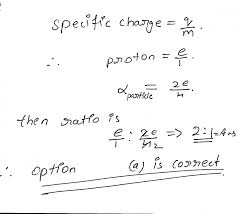 specific charge = q/m.
∴ proton = e/1.
α particle = 2e/4.
then ratio is
e/1 : 2e/4 2 => 2:1 = Ans
∴ option (a) is correct